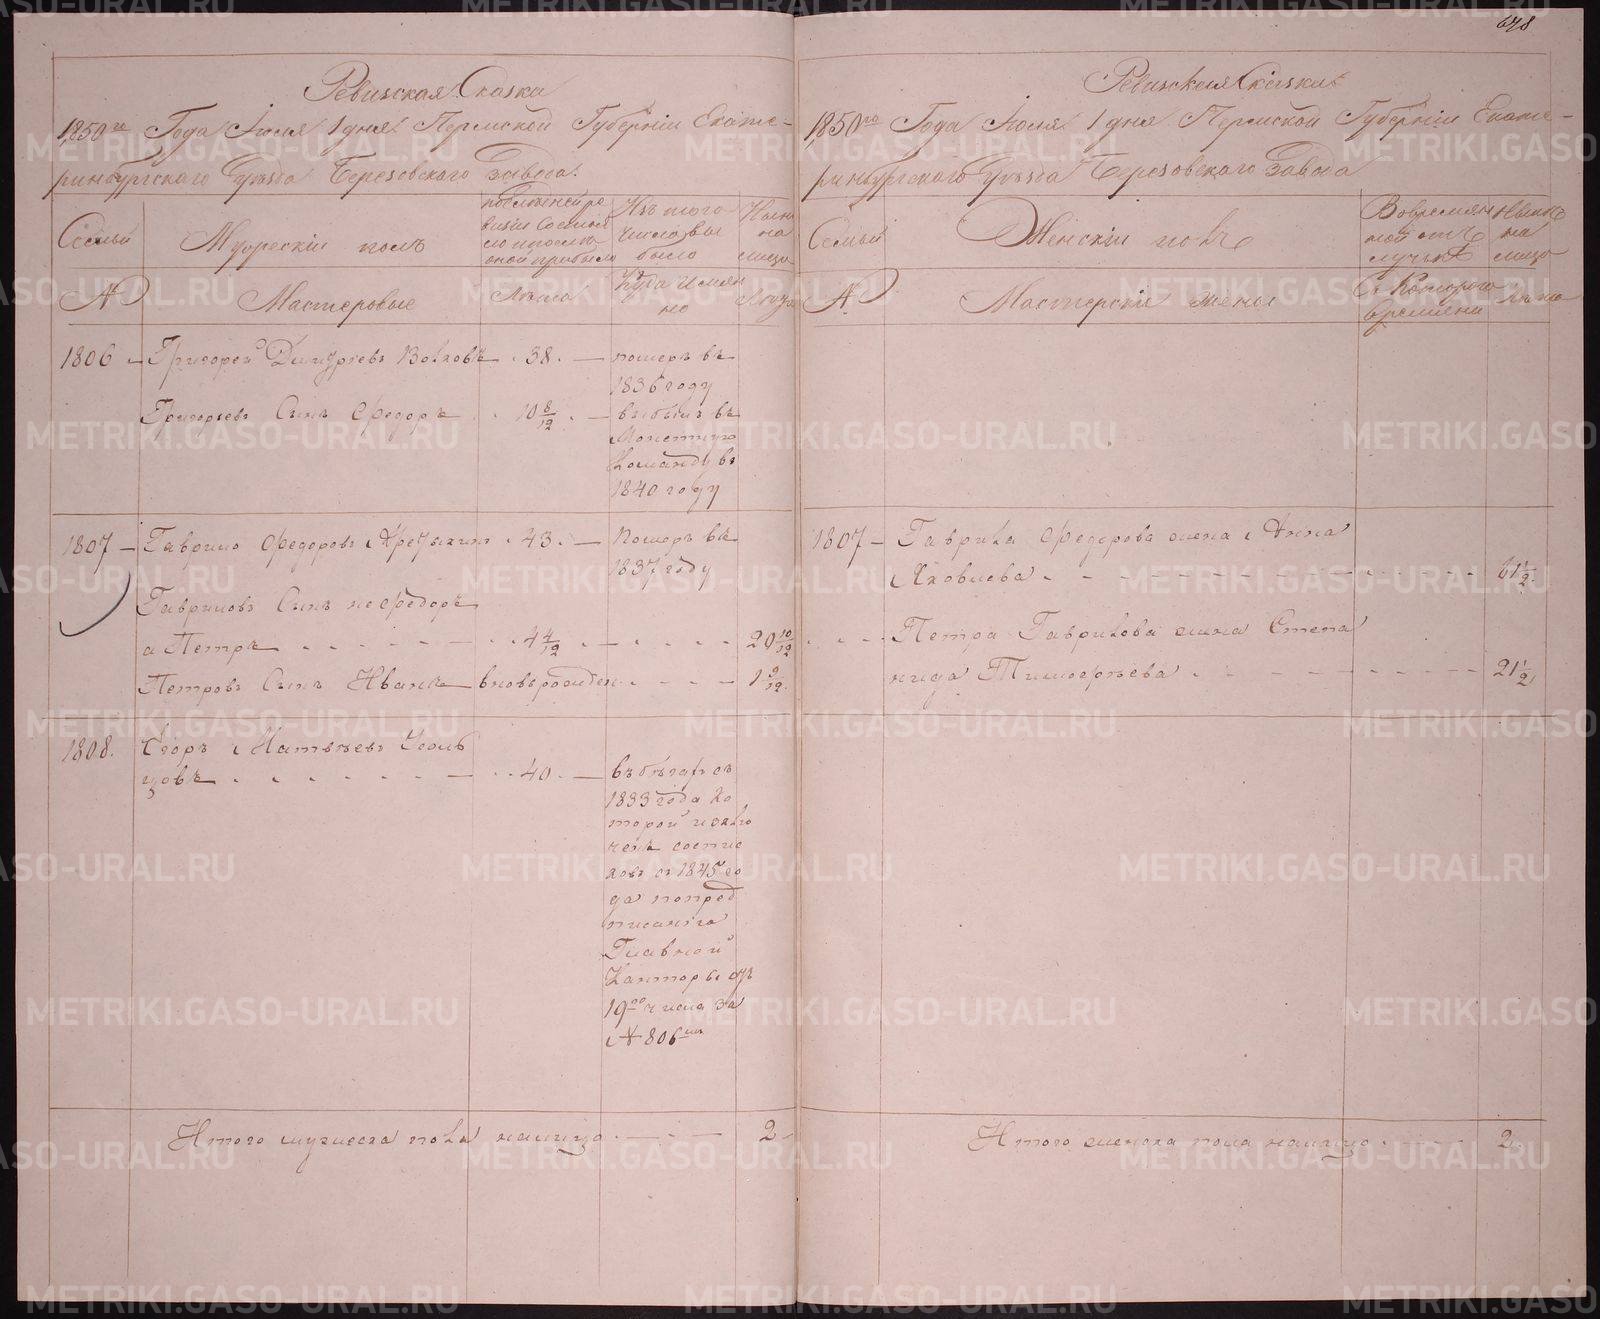 648
Ревизская Сказка
1850го Года Июля 1 дня Пермской Губернiи Екате-
ринбургскаго Уѣзда Березовскаго Завода.
Семьи
Мужескiй полъ
По последней ре
визiи состоя
ло и после
оной прибыло
Изъ того
числа вы
было
Ныне
на
лицо
№
Мастеровые
Лѣта
Куда имян
но
Лѣта
1806 — Григорей Дмитрiевъ Волковъ . 38 . — померъ въ
1836 году
Григорьевъ Сынъ Федоръ . . 10 8/12 . — выбылъ въ
Монетную
Команду въ
1840 году
1807 — Гаврило Федоровъ . 43 . — Померъ въ
1837 году
Гавриловъ Сынъ не Федоръ
а Петръ . . 4 4/12 . — 20 10/12
Петровъ Сынъ Иванъ вновь рожден 1 9/12
1808. Егоръ Матвѣевъ
цовъ . . 40 . — въ бѣгахъ съ
1833 года ко
торой исклю
ченъ соспис
ковъ съ 1845 го
да попред
писанiю
Главной
Канторы отъ
19го числа за
№ 806мъ
Итого мужеска пола налицо 2
Ревизская Сказка
1850го Года Июля 1 дня Пермской Губернiи Екате-
ринбургскаго Уѣзда Березовскаго Завода
Семьи
Женскiй полъ
Во времян
ной отъ
лучкѣ
Нынѣ
на
лицо
№
Мастерскiя жены
С Котораго
времяни
Лѣта
1807 — Гаврила Федорова жена Анна
Яковлева 61 1/2
Петра Гаврилова жена Степа
нида Тимофеева 21 1/2
Итого женска пола налицо 2
METRIKI.GASO-URAL.RU